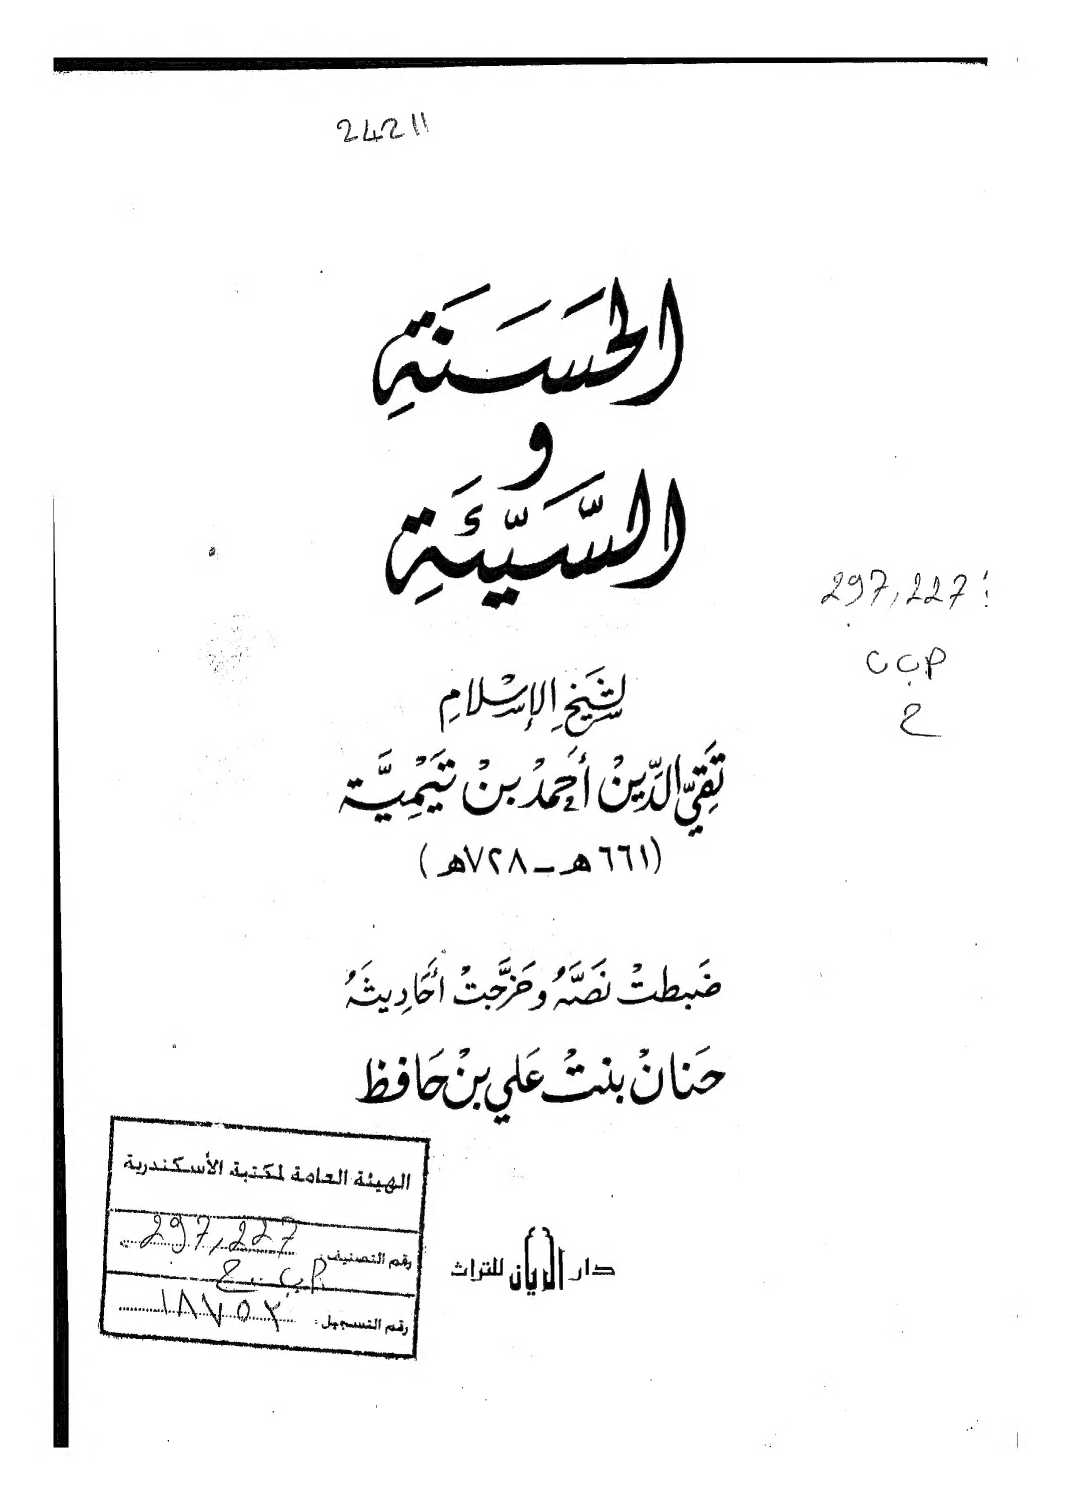 24211
الحَسَنَةِ
و
السَّيِّئَةِ
297,227
ح
لشَيْخِ الإِسْلامِ
تَقِيِّ الدِّينْ أَحْمَدْ بنْ تَيْمِيَّة
(٦٦١هـ - ٧٢٨هـ)
ضَبطتْ نَصَّهُ وخَرَّجتْ أحَادِيثَهُ
حنَانْ بنتْ عَلي بنْ حَافظ
الهيئة العامة لمكتبة الأسكندرية
رقم التصنيف: 297,227
رقم التسجيل: ١٨٧٥٢
دار الريان للتراث